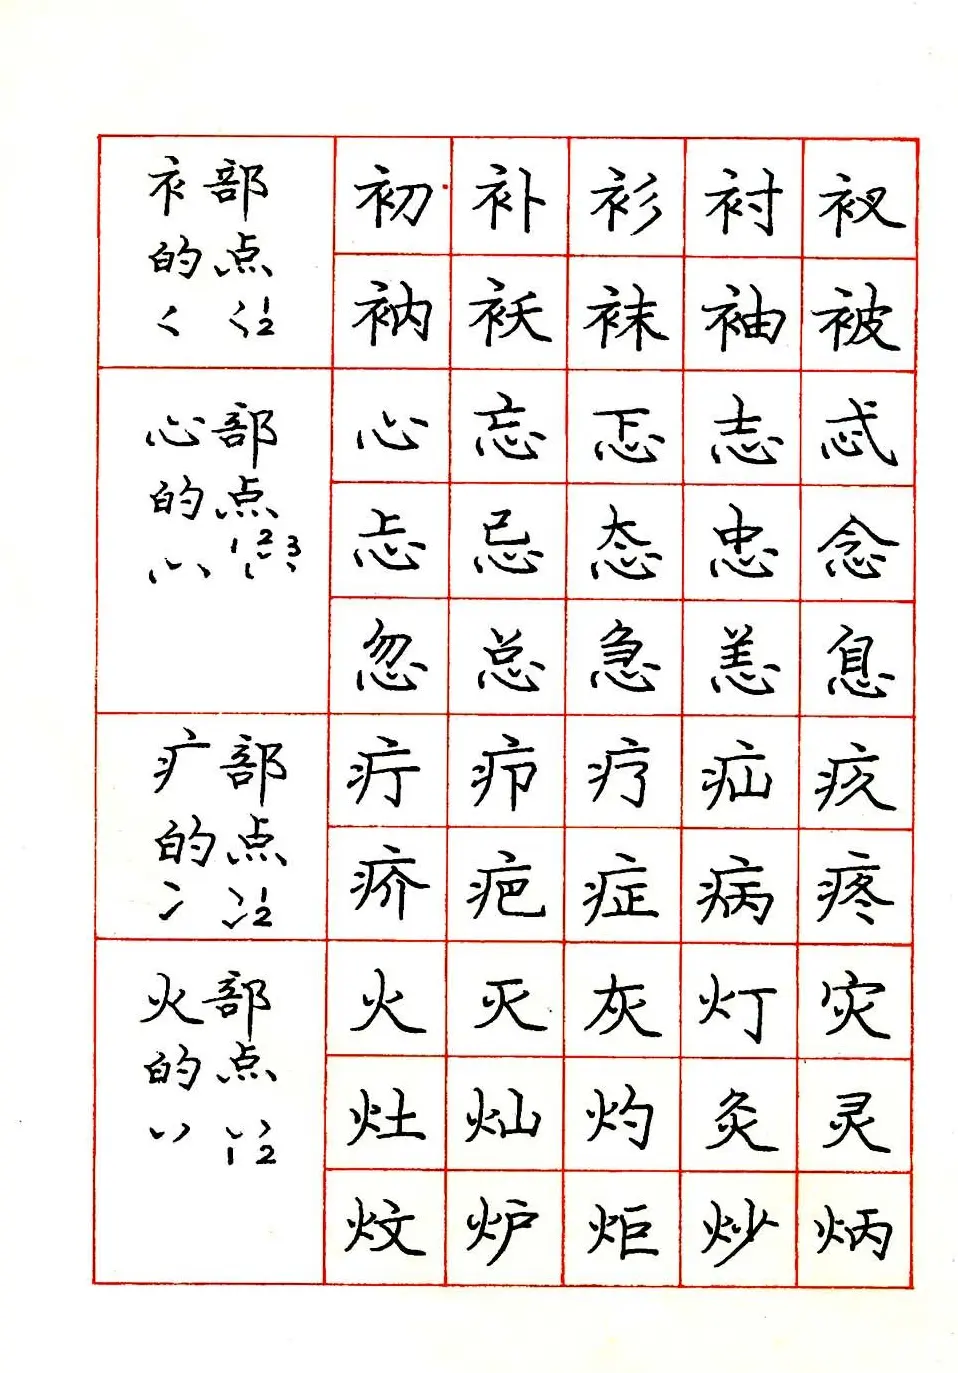 衤部
的点
1
2
初补衫衬衩
衲袄袜袖被
心部
的点
1 2 3
心忘忑志忒
忐忌态忠念
忽总急恙息
疒部
的点
1
2
疔疖疗疝疢
疥疤症病疼
火部
的点
1 2
火灭灰灯灾
灶灿灼灸灵
炆炉炬炒炳